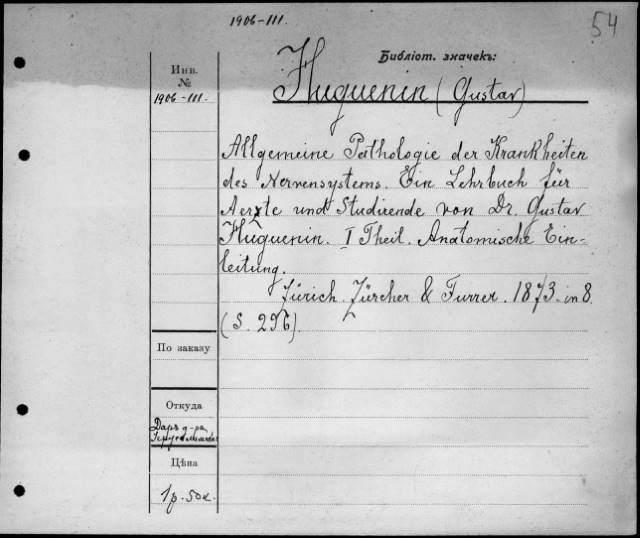 1906-III.
54
Библіот. значекъ:
Инв.
№
1906-III.
Huguenin (Gustav)
Allgemeine Pathologie der Krankheiten
des Nervensystems. Ein Lehrbuch für
Aerzte und Studirende von Dr. Gustav
Huguenin. I Theil. Anatomische Ein-
leitung.
Zürich. Zürcher & Furrer. 1873. in 8.
(S. 296).
По заказу
Откуда
Даръ д-ра
Цѣна
1р. 50к.